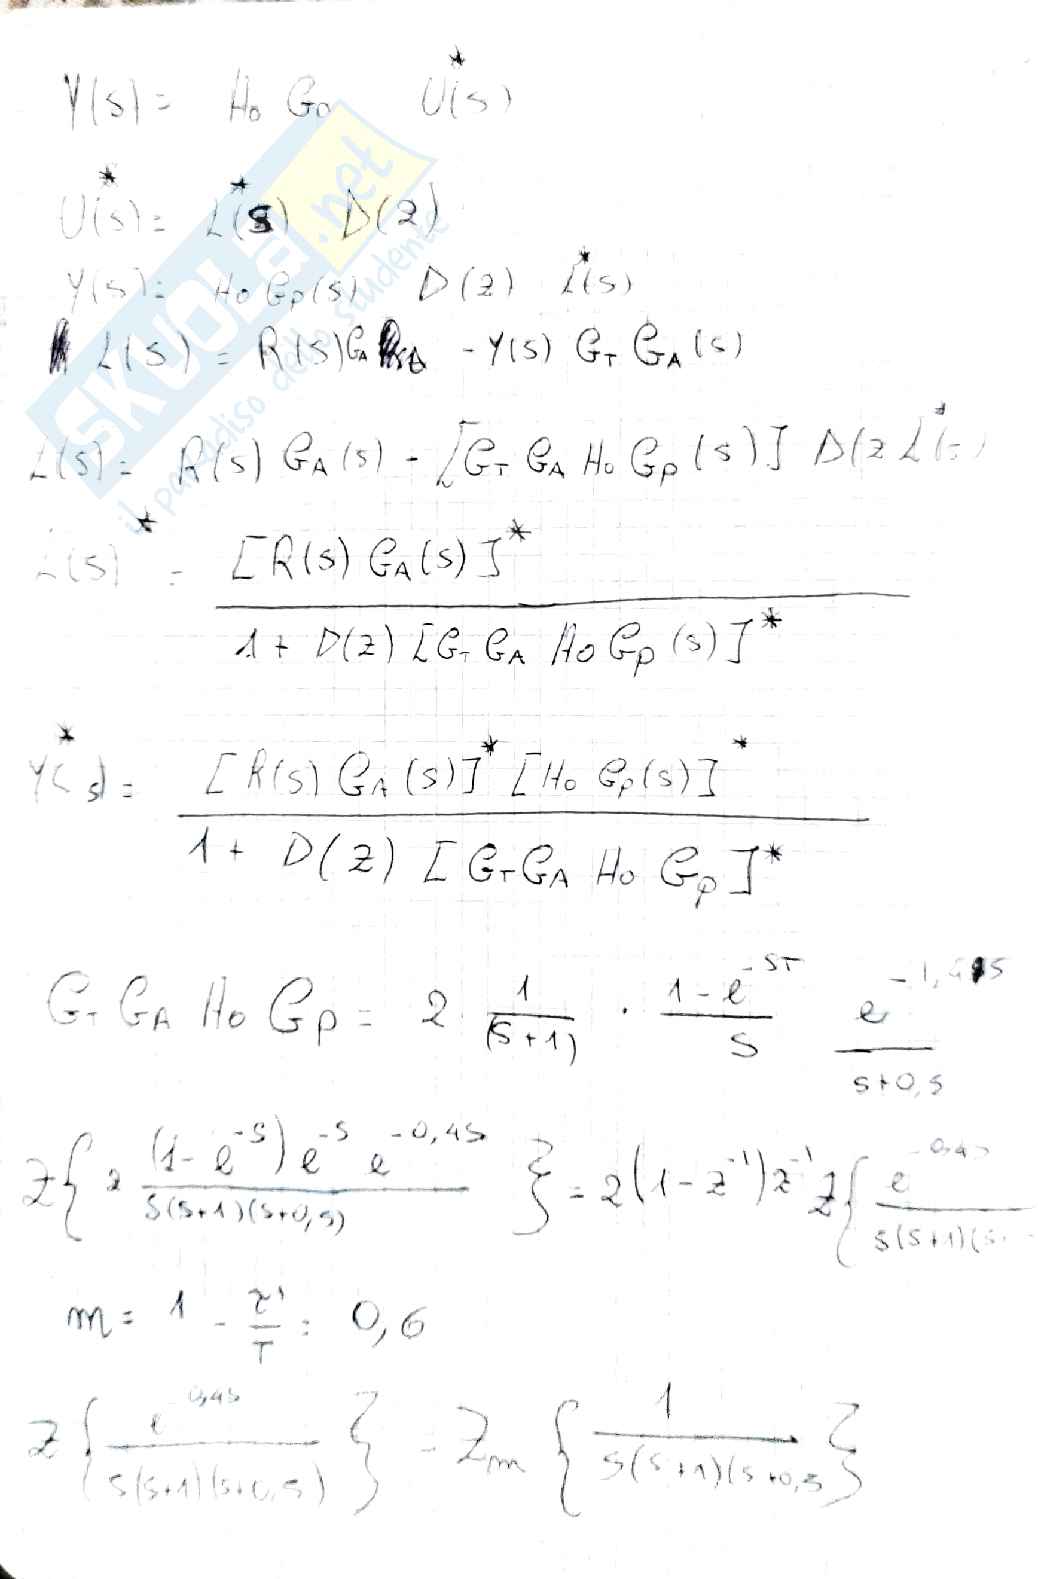 Y(s) = H₀ G₀ U*(s)
U*(s) = L*(s) D(z)
Y(s) = H₀ Gp(s) D(z) L*(s)
L(s) = R(s) G_A - Y(s) G_T G_A(s)
L(s) = R(s) G_A(s) - [G_T G_A H₀ Gp(s)] D(z L*(s)
L(s)* = [R(s) G_A(s)]* / 1 + D(z) [G_T G_A H₀ Gp(s)]*
Y*(s) = [R(s) G_A(s)]* [H₀ Gp(s)]* / 1 + D(z) [G_T G_A H₀ Gp]*
G_T G_A H₀ Gp = 2 1/(s+1) · (1-e^-sT)/s e^-1,4s/(s+0,5)
Z{2 (1-e^-s) e^-s e^-0,4s / s(s+1)(s+0,5)} = 2(1-z^-1)z^-1 Z{e^-0,4s / s(s+1)(s+
m = 1 - τ'/T = 0,6
Z{e^-0,4s / s(s+1)(s+0,5)} = Z_m {1 / s(s+1)(s+0,5}
SKUOLA.net
il paradiso dello studente